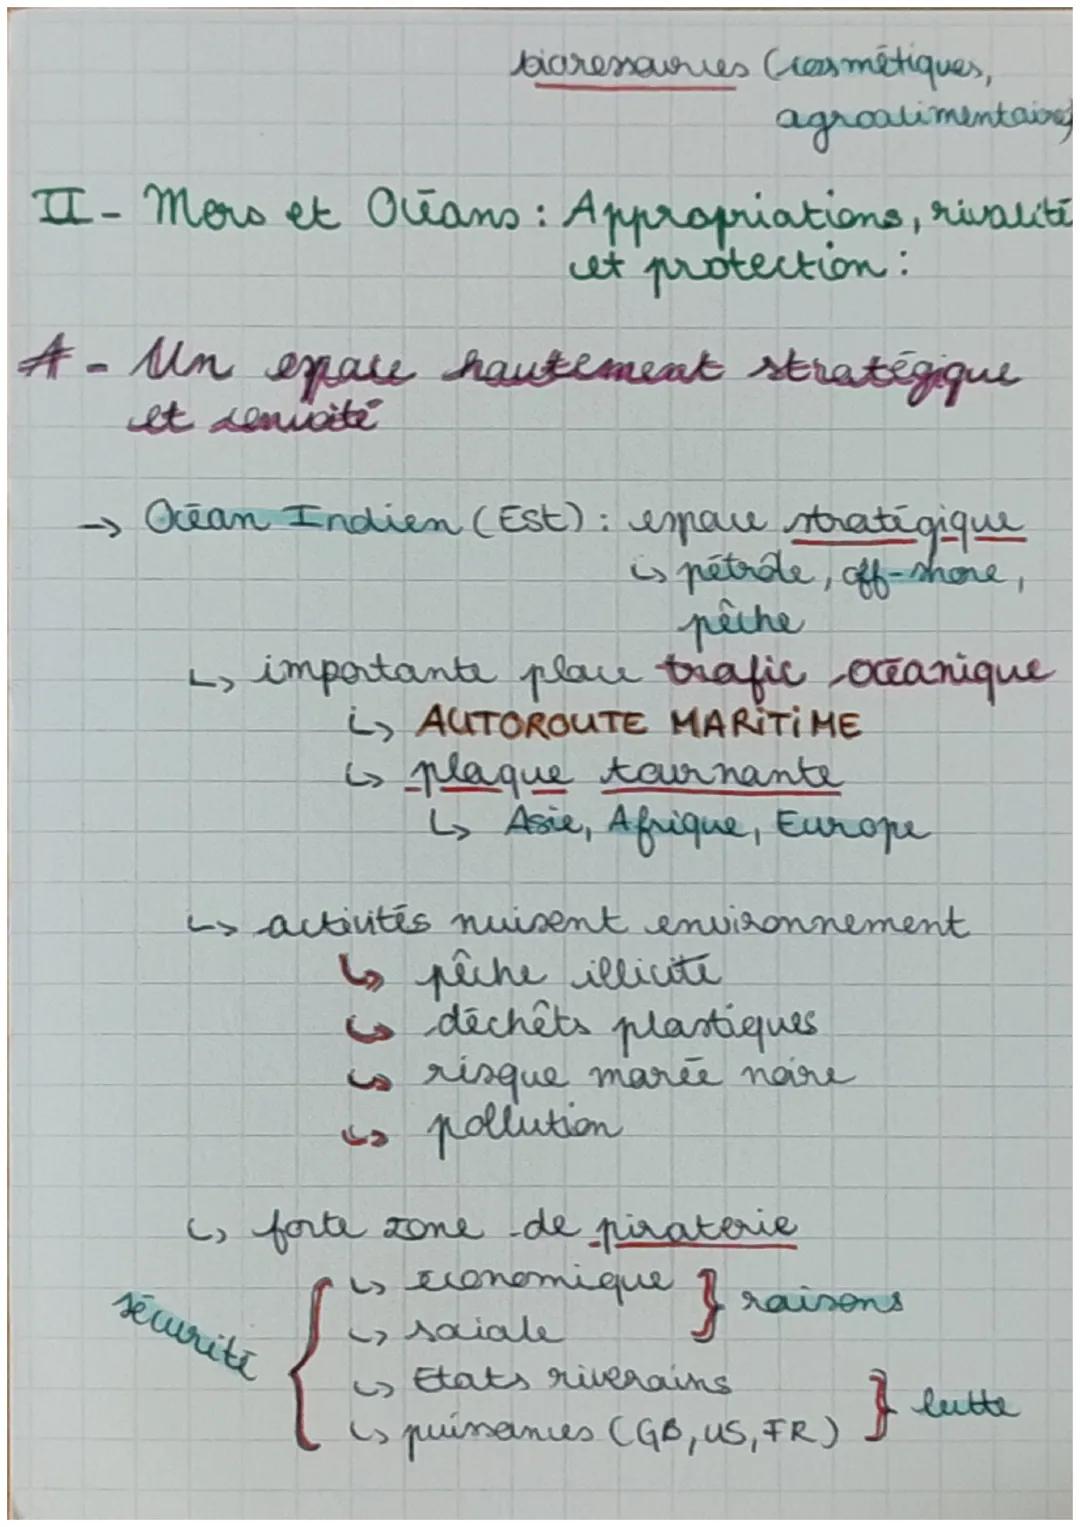 bioressources (cosmétiques,
agroalimentaire)
II - Mers et Océans : Appropriations, rivalité
et protection :
A - Un espace hautement stratégique
et convoité
→ Océan Indien (Est) : espace stratégique
↳ pétrôle, off-shore,
pêche
↳ importante place trafic océanique
↳ AUTOROUTE MARITIME
↳ plaque tournante
↳ Asie, Afrique, Europe
↳ activités nuisent environnement
↳ pêche illicite
↳ déchêts plastiques
↳ risque marée noire
↳ pollution
↳ forte zone de piraterie
↳ économique } raisons
sécurité { ↳ sociale
↳ Etats riverains
↳ puissances (GB, US, FR) } lutte